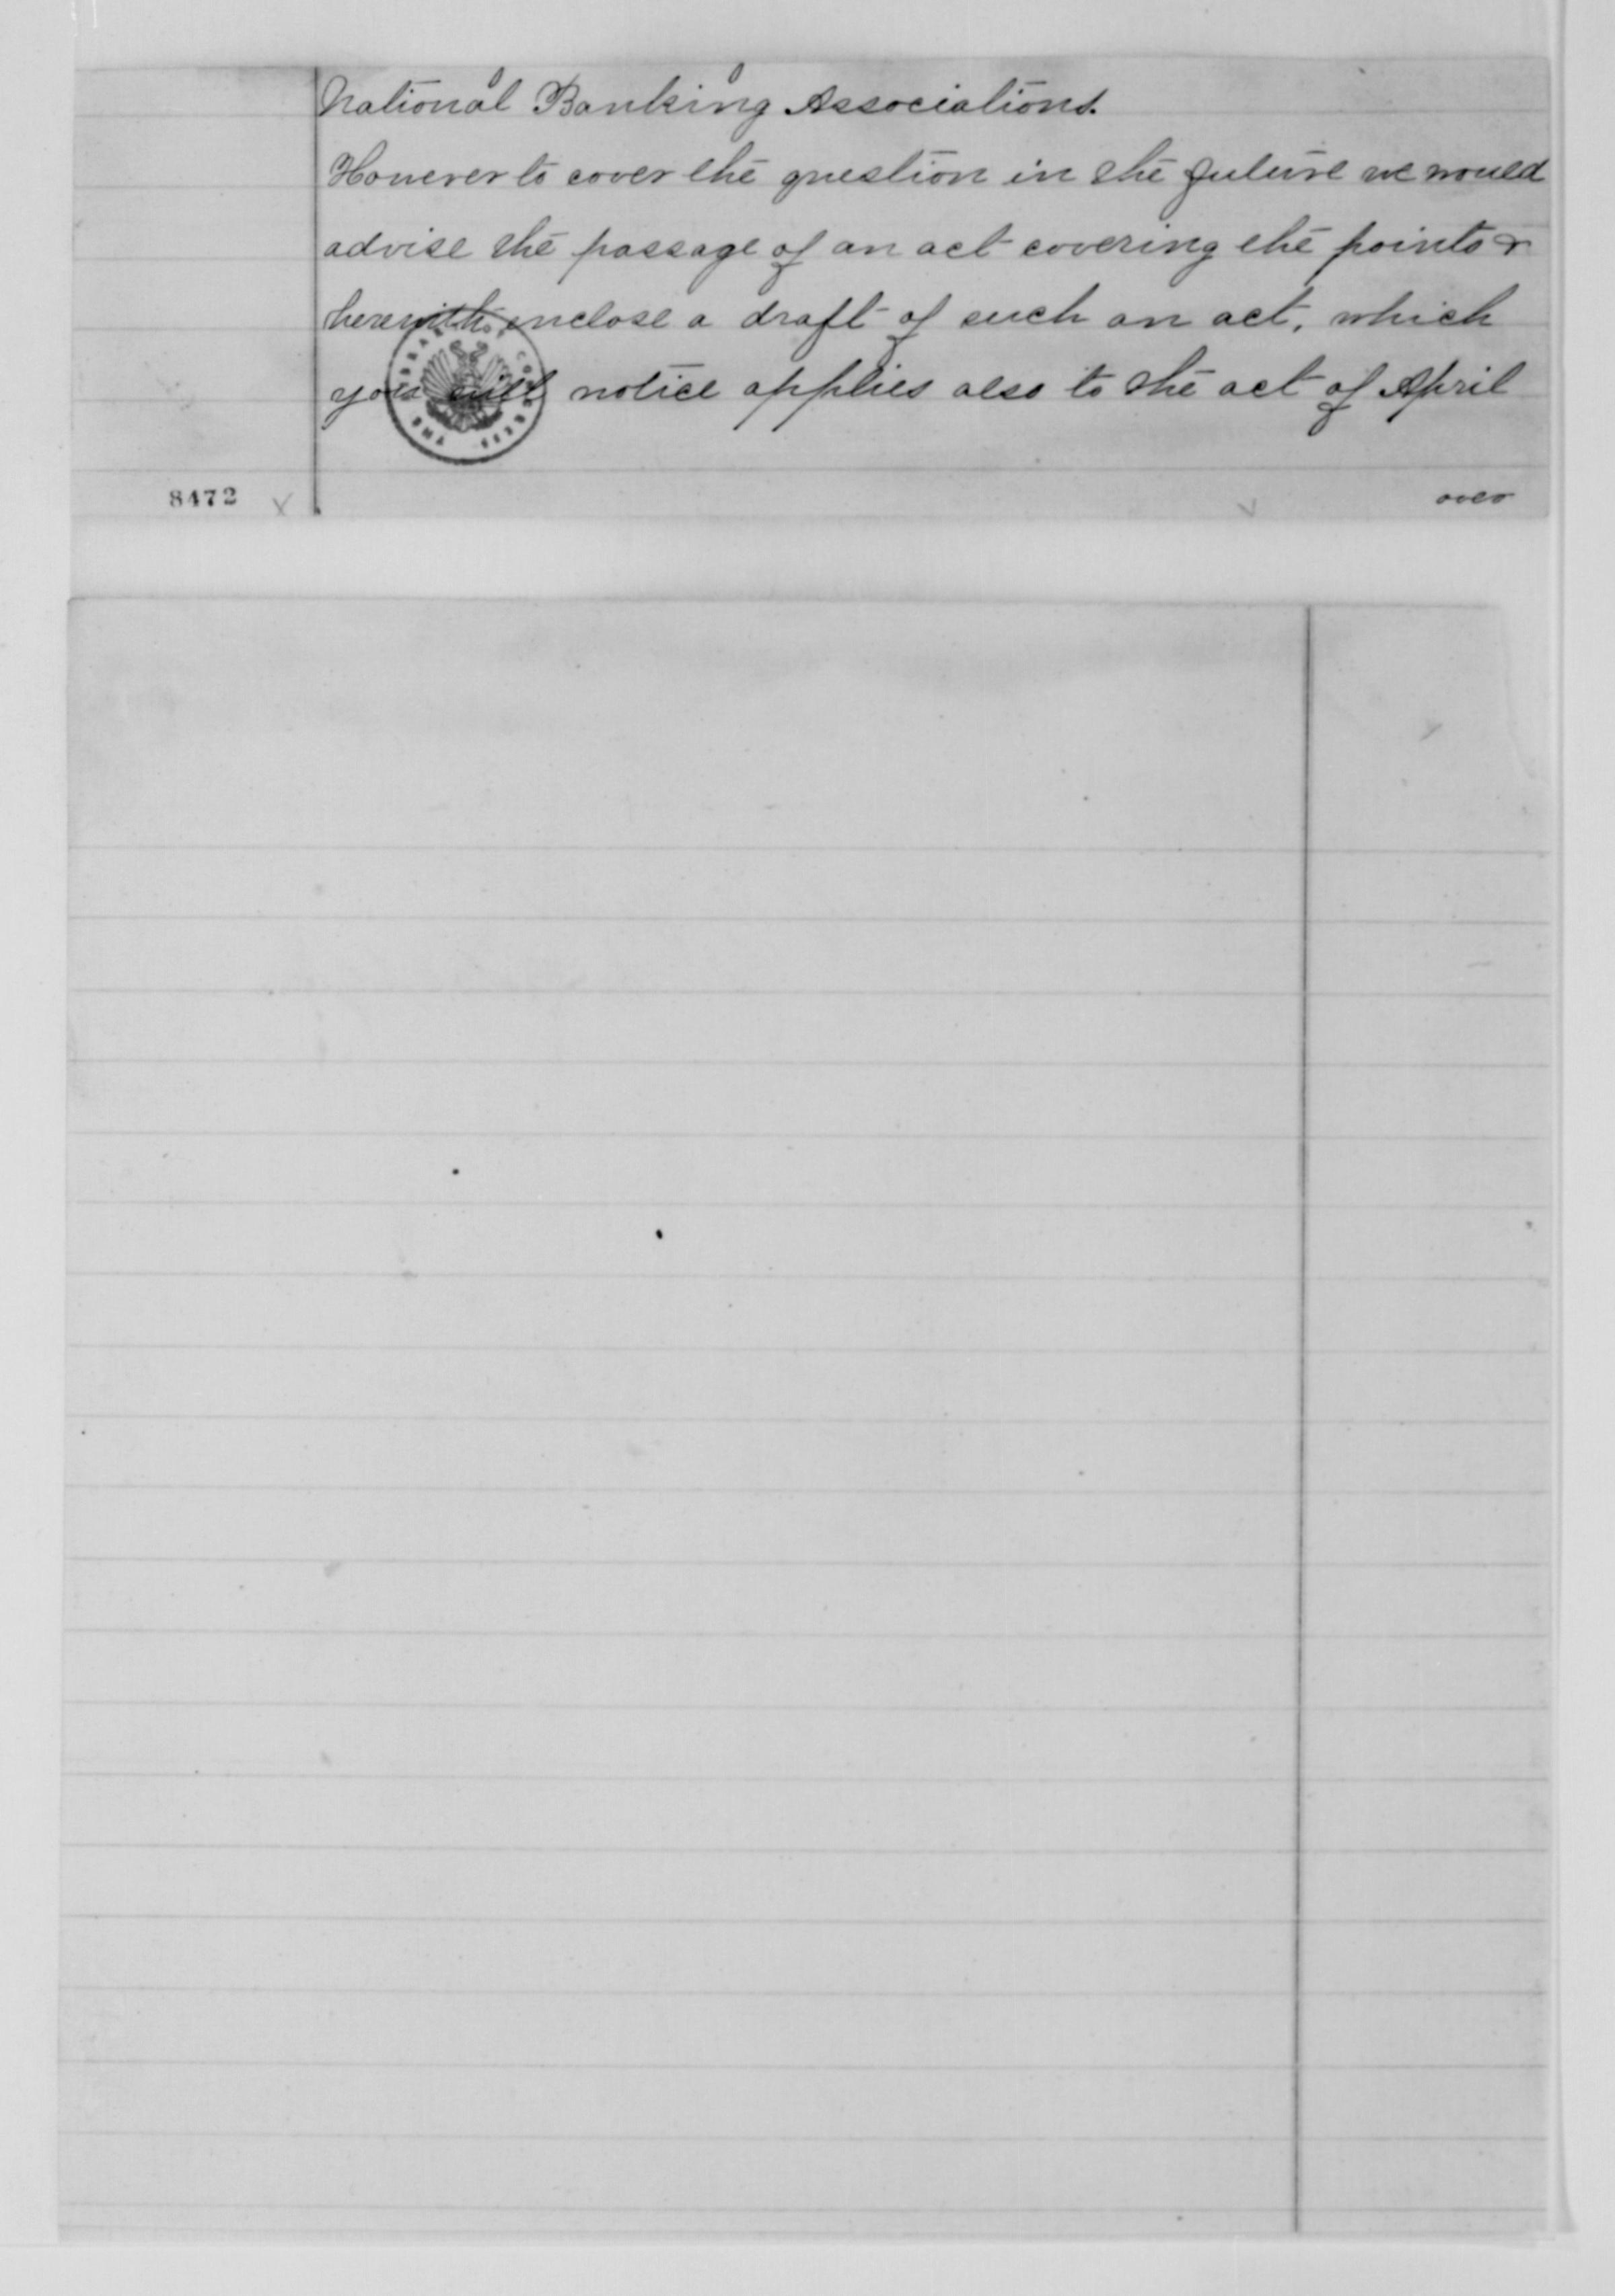 National Banking Associations.
However to cover the question in the future we would
advise the passage of an act covering the points &
herewith enclose a draft of such an act, which
you will notice applies also to the act of April
8472
over